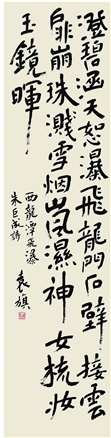 澄碧涵天怒瀑飛龍門石壁接雲
扉崩珠濺雪烟嵐濕神女梳妝
玉鏡暉
西龍潭飛瀑
朱巨成詩
袁旗